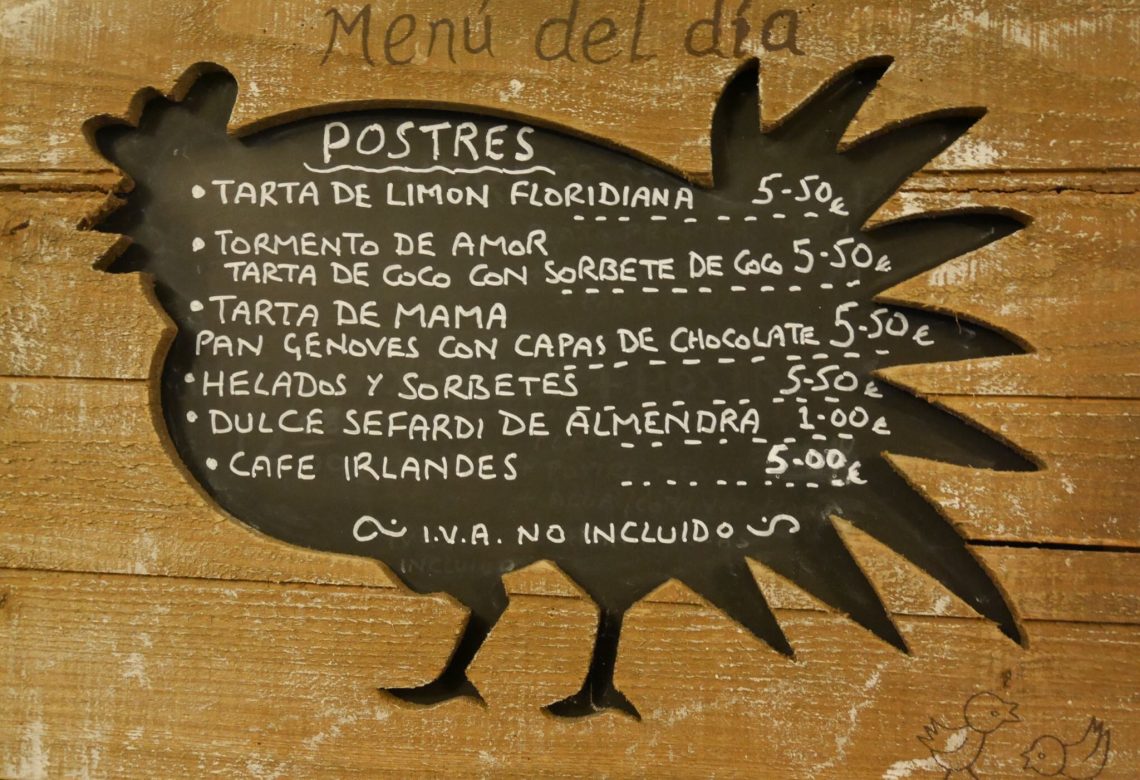 Menú del día
POSTRES
• TARTA DE LIMON FLORIDIANA 5-50€
• TORMENTO DE AMOR
TARTA DE COCO CON SORBETE DE COCO 5-50€
• TARTA DE MAMA
PAN GENOVES CON CAPAS DE CHOCOLATE 5-50€
• HELADOS Y SORBETES 5-50€
• DULCE SEFARDI DE ALMENDRA 1-00€
• CAFE IRLANDES 5-00€
I.V.A. NO INCLUIDO